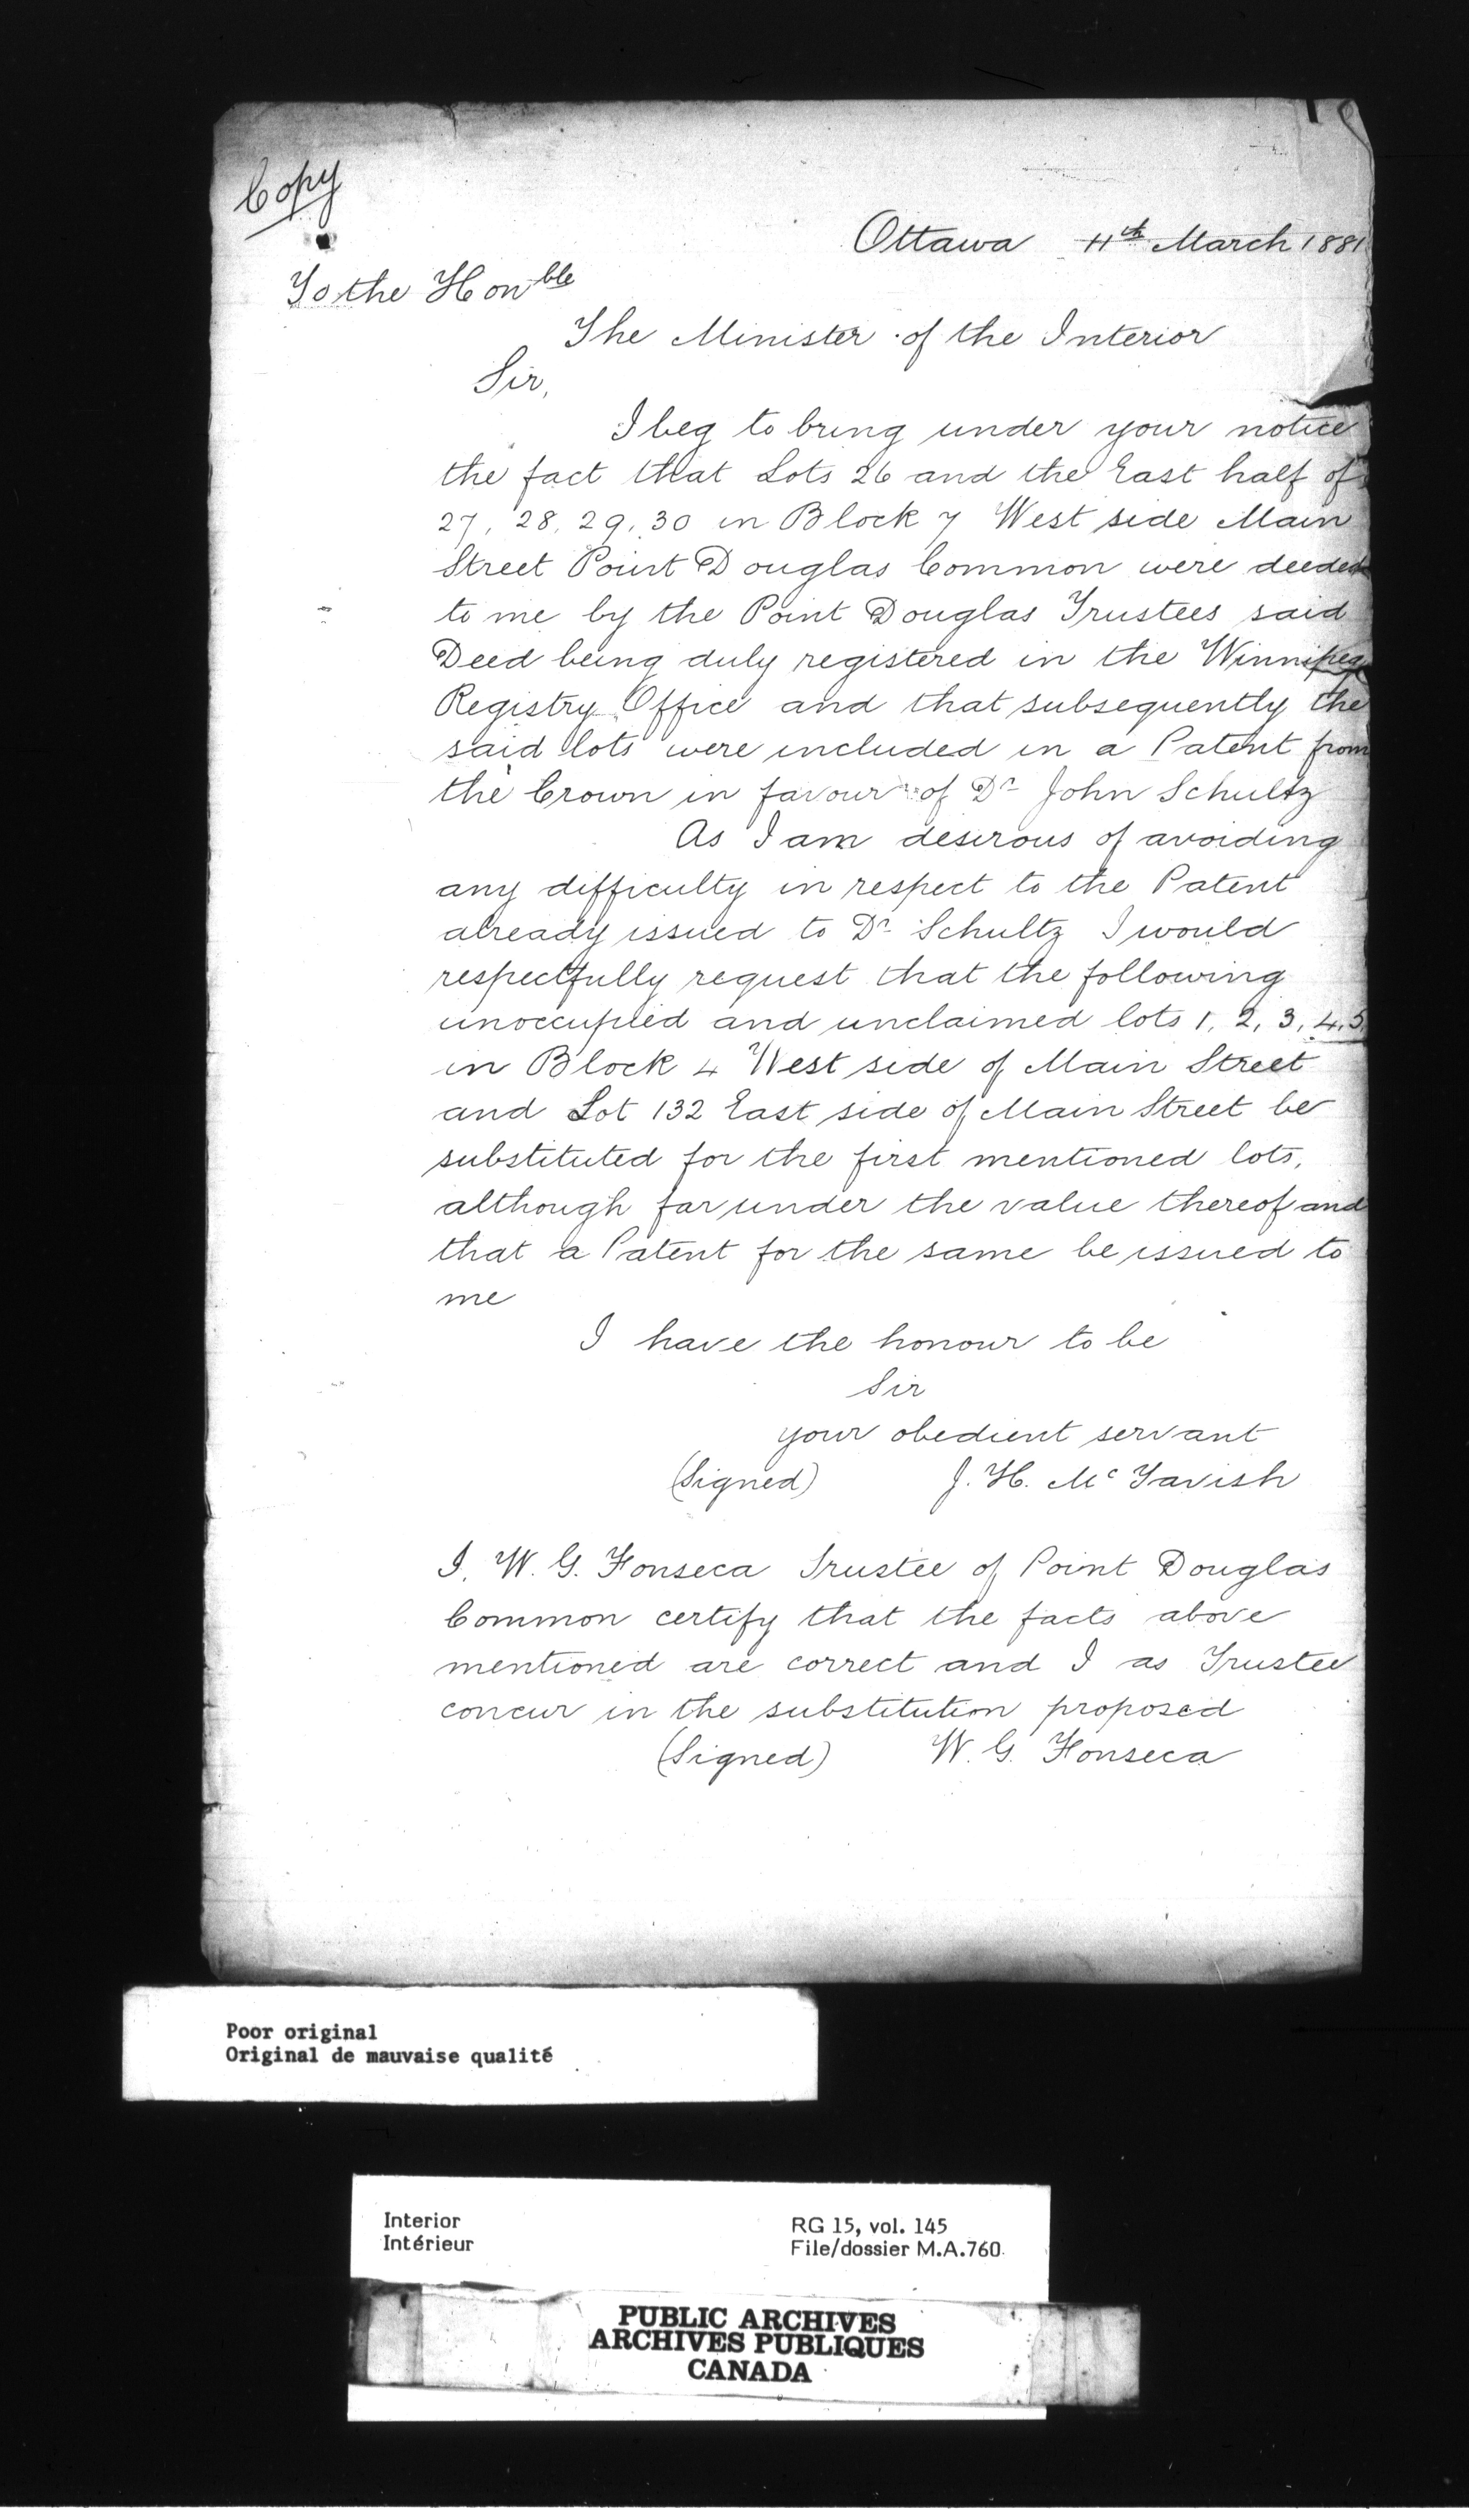 Copy
Ottawa 11th March 1881
To the Honble
The Minister of the Interior
Sir,
I beg to bring under your notice
the fact that Lots 26 and the East half of
27, 28, 29, 30 in Block 7 West side Main
Street Point Douglas Common were deeded
to me by the Point Douglas Trustees said
Deed being duly registered in the Winnipeg
Registry Office and that subsequently the
said lots were included in a Patent from
the Crown in favour of Dr John Schultz
As I am desirous of avoiding
any difficulty in respect to the Patent
already issued to Dr Schultz I would
respectfully request that the following
unoccupied and unclaimed lots 1, 2, 3, 4, 5
in Block 4 West side of Main Street
and Lot 132 East side of Main Street be
substituted for the first mentioned lots,
although far under the value thereof and
that a Patent for the same be issued to
me
I have the honour to be
Sir
your obedient servant
(Signed) J. H. McTavish
I, W. G. Fonseca Trustee of Point Douglas
Common certify that the facts above
mentioned are correct and I as Trustee
concur in the substitution proposed
(Signed) W. G. Fonseca
Poor original
Original de mauvaise qualité
Interior
Intérieur
RG 15, vol. 145
File/dossier M.A.760
PUBLIC ARCHIVES
ARCHIVES PUBLIQUES
CANADA